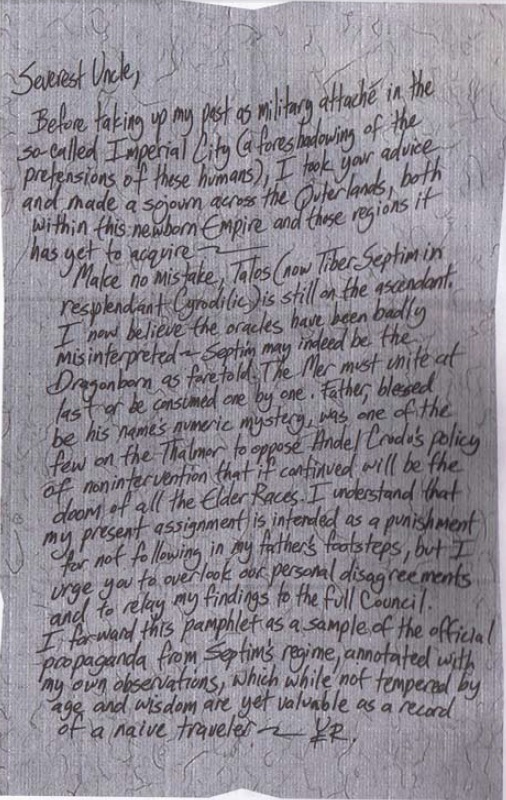 Severest Uncle,
Before taking up my post as military attaché in the
so-called Imperial City (a foreshadowing of the
pretensions of these humans), I took your advice
and made a sojourn across the Outerlands, both
within this newborn Empire and those regions it
has yet to acquire ~
Make no mistake, Talos (now Tiber Septim in
resplendant Cyrodilic) is still on the ascendant.
I now believe the oracles have been badly
misinterpreted ~ Septim may indeed be the
Dragonborn as foretold. The Mer must unite at
last or be consumed one by one. Father, blessed
be his name's numeric mystery, was one of the
few on the Thalmor to oppose Andel Crodo's policy
of nonintervention that if continued will be the
doom of all the Elder Races. I understand that
my present assignment is intended as a punishment
for not following in my father's footsteps, but I
urge you to overlook our personal disagreements
and to relay my findings to the full Council.
I forward this pamphlet as a sample of the official
propaganda from Septim's regime, annotated with
my own observations, which while not tempered by
age and wisdom are yet valuable as a record
of a naive traveler ~ YR.